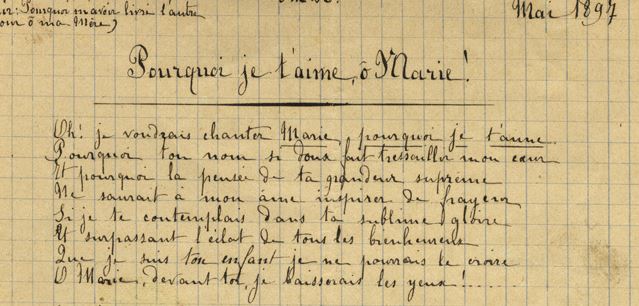 Mai 1897
ur: Pourquoi m'avoir livré l'autre
our ô ma Mère,
Pourquoi je t'aime, ô Marie!
Oh! je voudrais chanter Marie, pourquoi je t'aime
Pourquoi ton nom si doux fait tressaillir mon cœur
Et pourquoi la pensée de ta grandeur suprême
Ne saurait à mon âme inspirer de frayeur
Si je te contemplais dans ta sublime gloire
Et surpassant l'éclat de tous les bienheureux
Que je suis ton enfant je ne pourrais le croire
O Marie, devant toi, je baisserais les yeux!.....